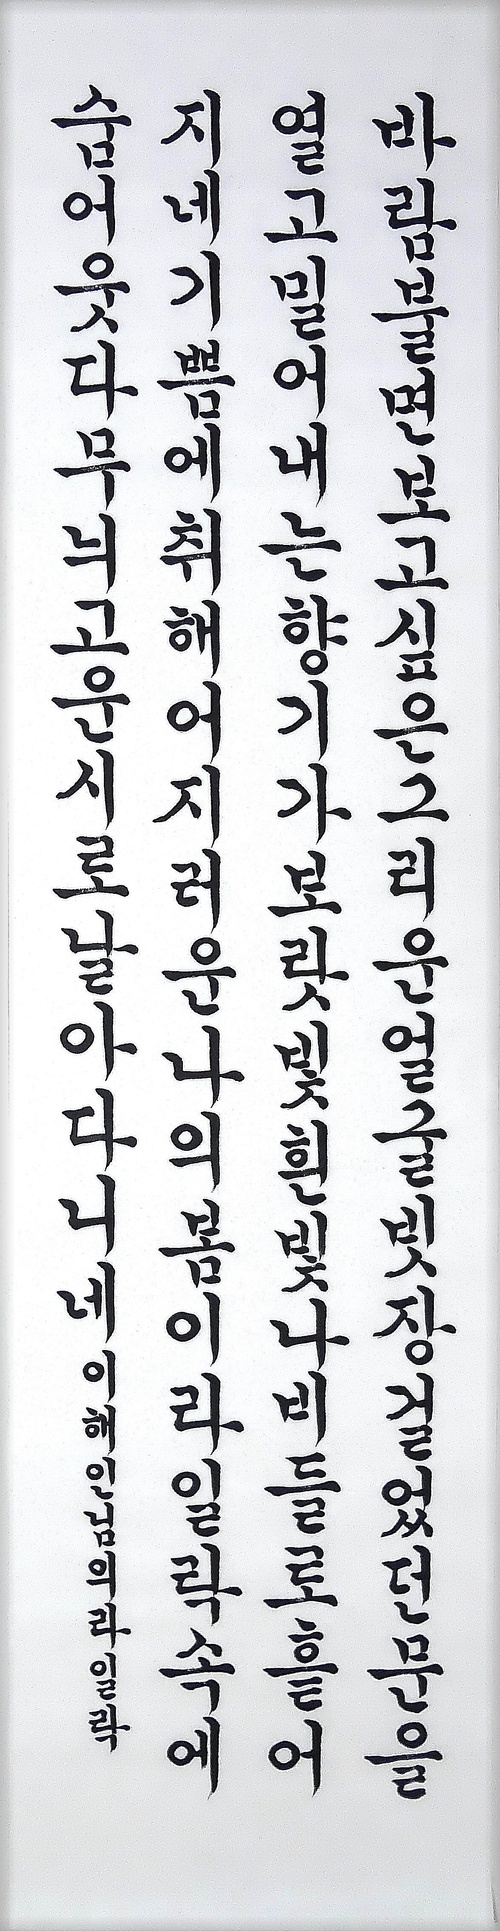 바람불면보고싶은그리운얼굴빗장걸었던문을
열고밀어내는향기가보랏빛흰빛나비들로흩어
지네기쁨에취해어지러운나의봄이라일락속에
숨어웃다무늬고운시로날아다니네이해인님의라일락